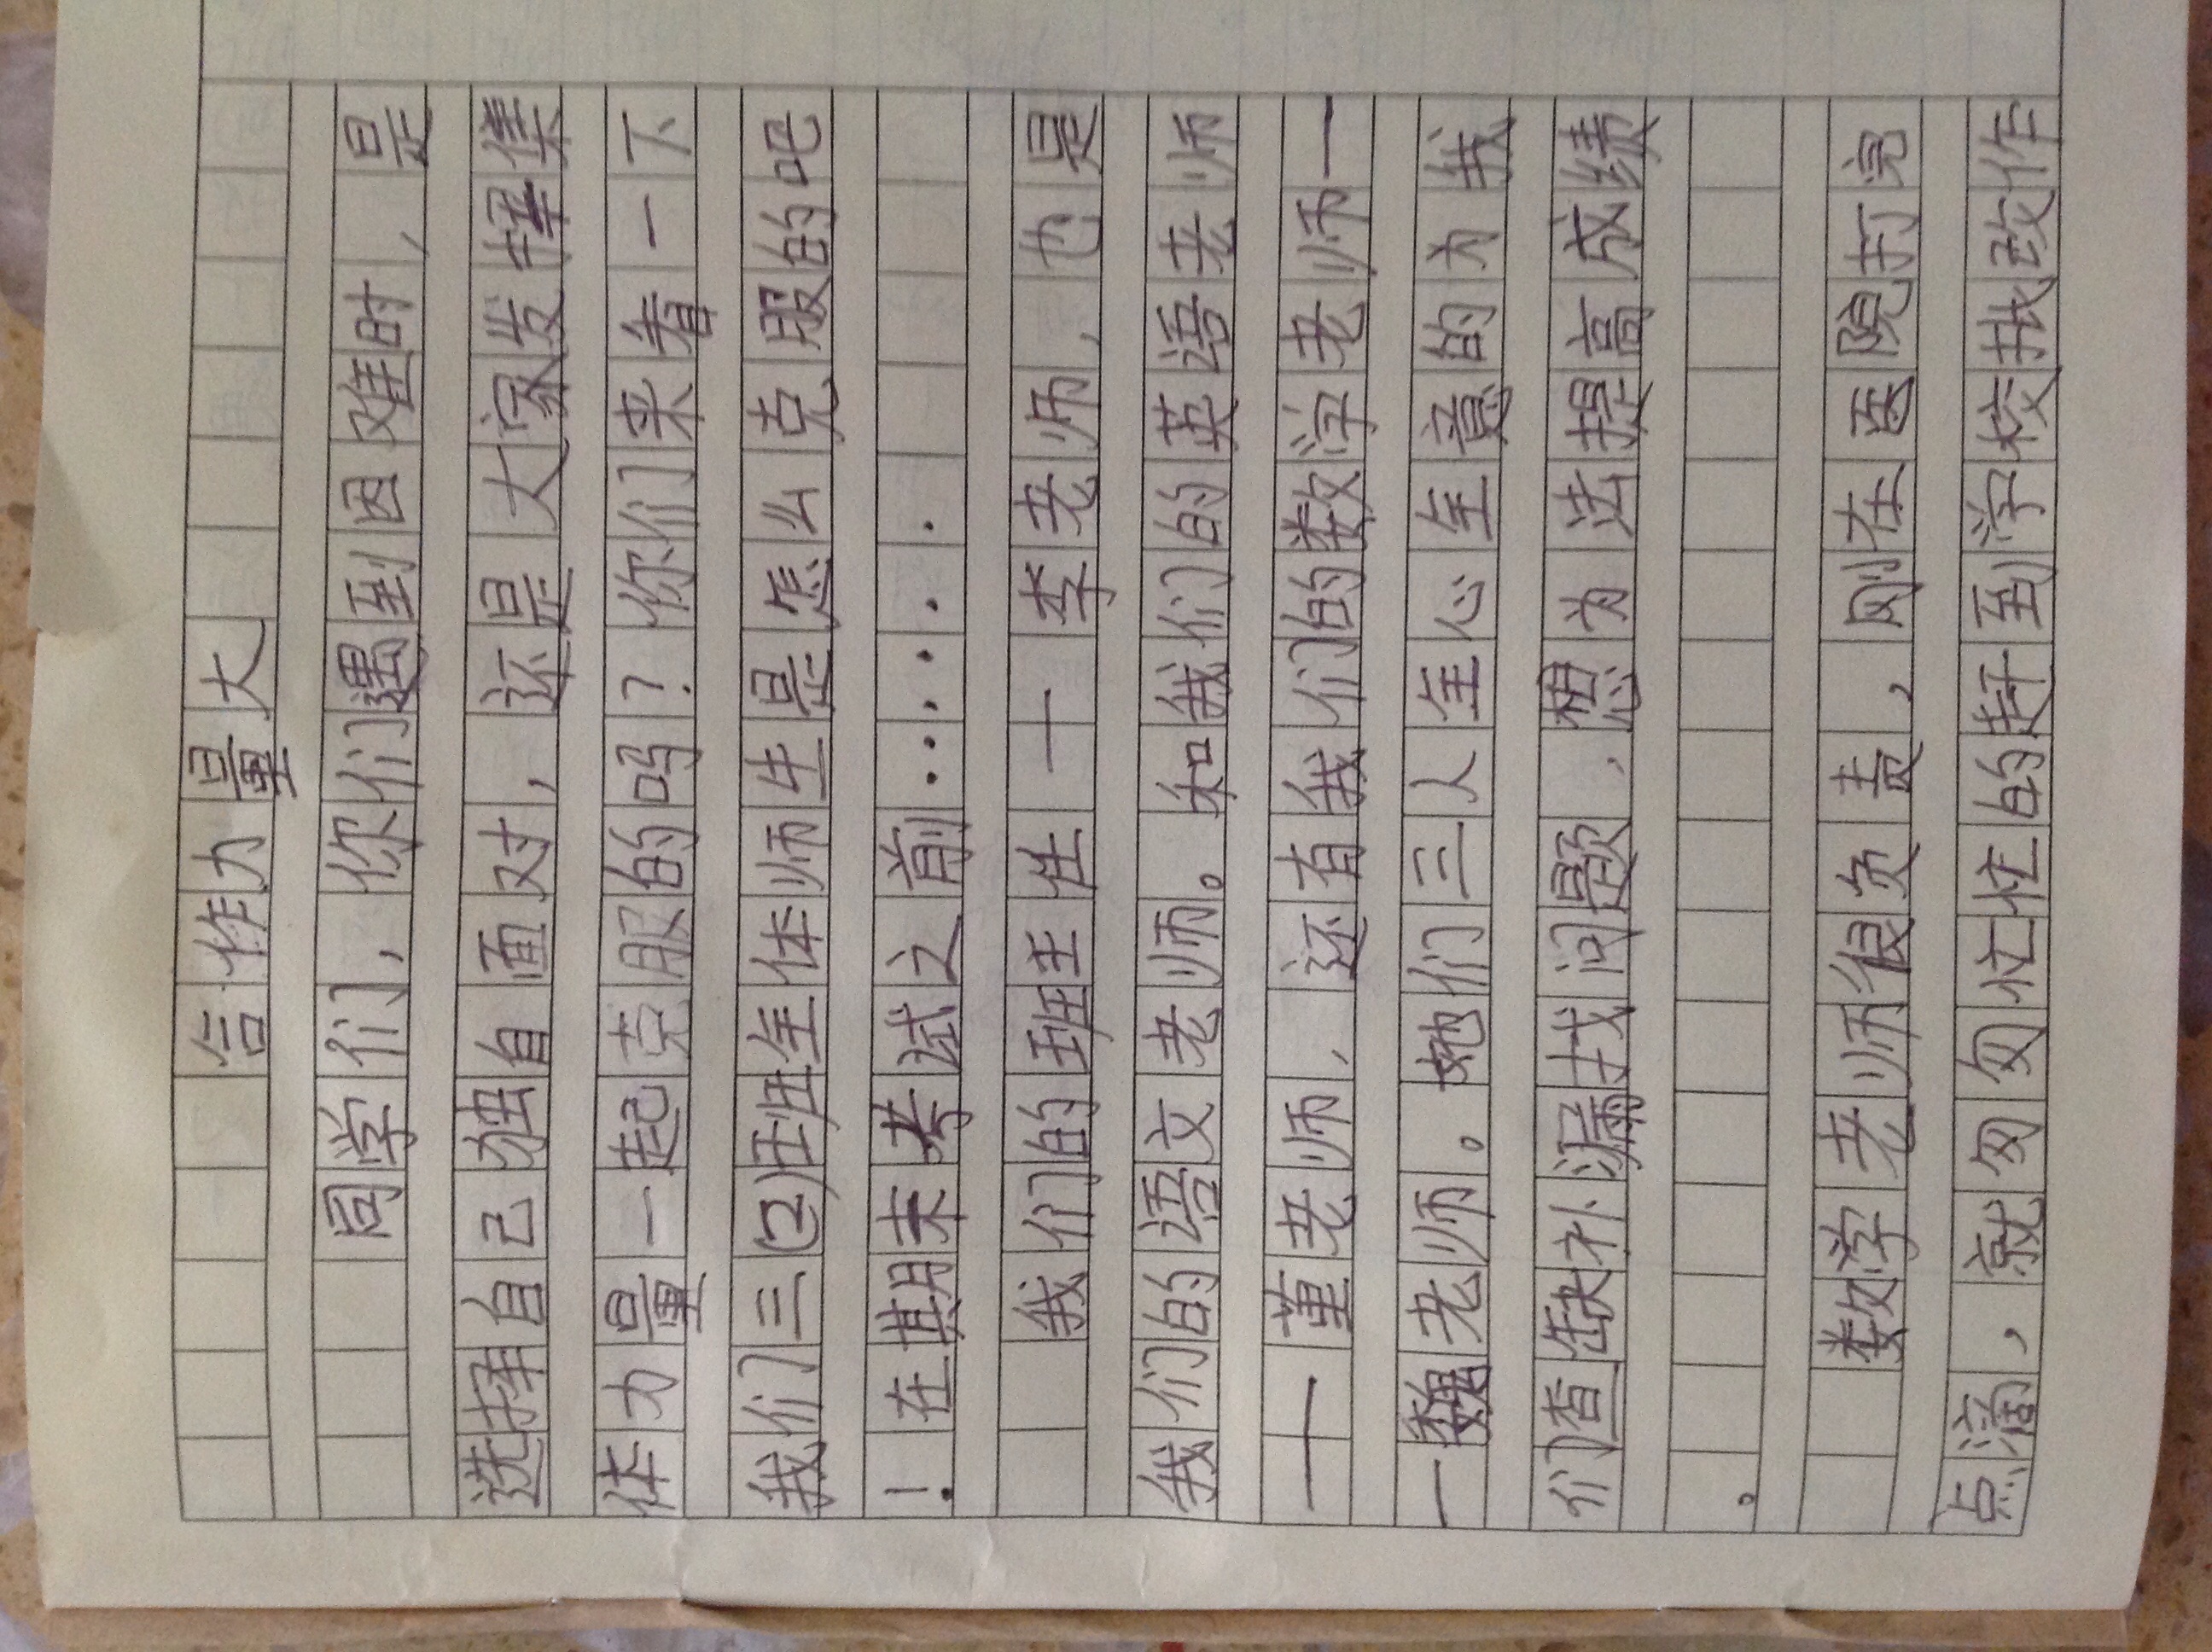 合作力量大
同学们，你们遇到困难时，是
选择自己独自面对，还是大家发挥集
体力量一起克服的吗？你们来看一下
我们三(2)班全体师生是怎么克服的吧
！在期末考试之前……..
我们的班主任——李老师，也是
我们的语文老师。和我们的英语老师
——董老师，还有我们的数学老师—
—魏老师。她们三人全心全意的为我
们查缺补漏找问题，想为法提高成绩
。
数学老师很负责，刚在医院打完
点滴，就匆匆忙忙的赶到学校批改作